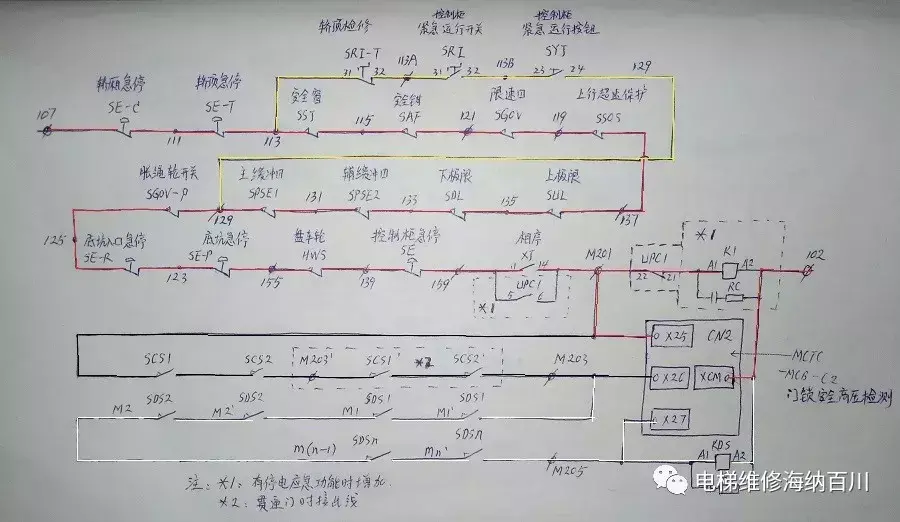 轿顶检修
控制柜
紧急运行开关
控制柜
紧急运行按钮
SRI-T
113A
SRI
113B
SYI
129
31
32
31
32
23
24
轿厢急停
轿顶急停
SE-C
SE-T
安全窗
安全钳
限速口
上行超速保护
107
SSJ
115
SAF
121
SGOV
119
SSOS
111
113
胀绳轮开关
主缓冲口
辅缓冲口
下极限
上极限
SGOV-P
129
SPSE1
131
SPSE2
133
SDL
135
SUL
137
125
底坑入口急停
底坑急停
盘车轮
控制柜急停
相序
SE-R
123
SE-P
155
HWS
139
SE
159
XJ
14
M201
UPC1
22
21
*1
A1
K1
A2
RC
102
UPC1
5
6
*1
X25
CN2
SCS1
SCS2
M203'
SCS1'
*2
SCS2'
M203
X26
XCM
MCTC
-MCB-C2
门锁安全高压检测
M2
SDS2
M2'
SDS2
M1
SDS1
M1'
SDS1
X27
m(n-1)
SDSn
Mn'
SDSn
M205
A1
KDS
A2
注: *1: 有停电应急功能时增加.
*2: 贯通门时接此线
电梯维修海纳百川